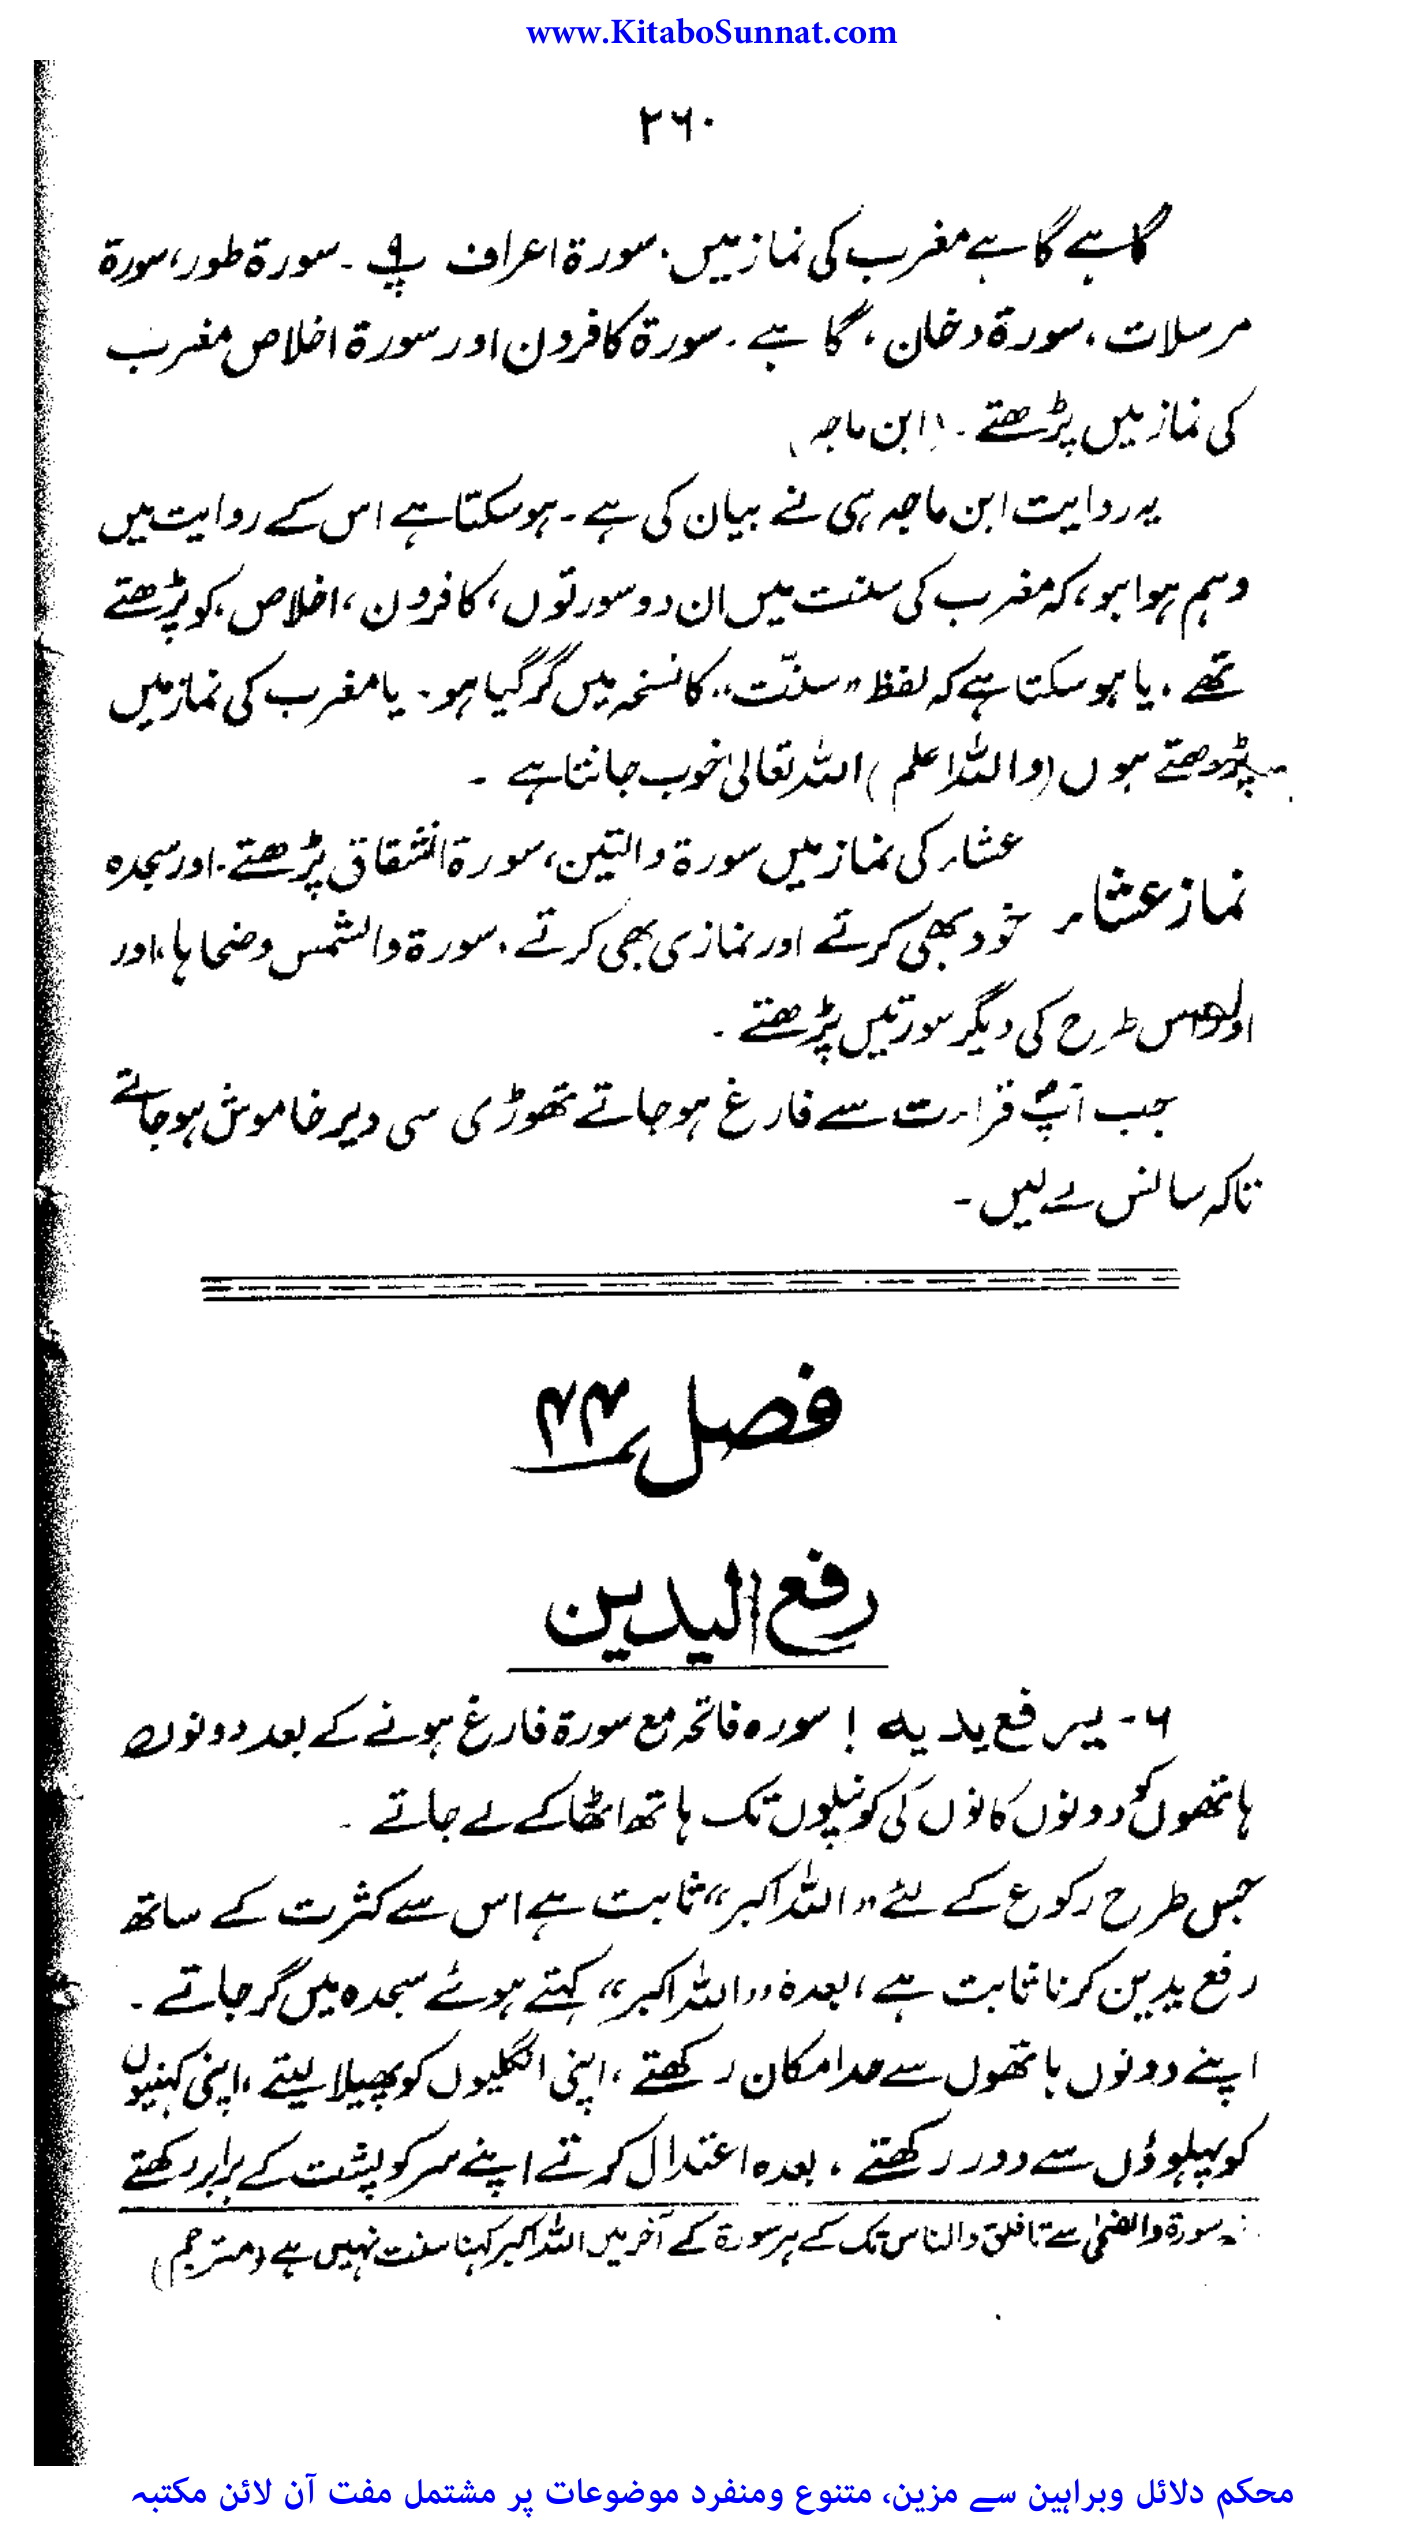 www.KitaboSunnat.com
۲۶۰
گاہے گاہے مغرب کی نماز میں، سورۃ اعراف پ ۹ ۔ سورۃ طور، سورۃ
مرسلات، سورۃ دخان، گاہے ۔ سورۃ کافرون اور سورۃ اخلاص مغرب
کی نماز میں پڑھتے ۔ (ابن ماجہ)
یہ روایت ابن ماجہ ہی نے بیان کی ہے ۔ ہو سکتا ہے اس کے روایت میں
وہم ہوا ہو، کہ مغرب کی سنت میں ان دو سورتوں، کافرون، اخلاص، کو پڑھتے
تھے ، یا ہو سکتا ہے کہ لفظ "سنّت" کا نسخہ میں گر گیا ہو ۔ یا مغرب کی نماز میں
پڑھتے ہوں (واللہ اعلم) اللہ تعالیٰ خوب جانتا ہے ۔
نماز عشاء
عشاء کی نماز میں سورۃ والتین، سورۃ انشقاق پڑھتے ۔ اور سجدہ
خود بھی کرتے اور نمازی بھی کرتے ، سورۃ والشمس وضحاہا، اور
اس طرح کی دیگر سورتیں پڑھتے ۔
جب آپؐ قراءت سے فارغ ہو جاتے تھوڑی سی دیر خاموش ہو جاتے
تاکہ سانس لے لیں ۔
فصل ۴۴
رفع الیدین
۶- یرفع یدیه ! سورہ فاتحہ مع سورۃ فارغ ہونے کے بعد دونوں
ہاتھوں کو دونوں کانوں کی کونپلوں تک ہاتھ اٹھا کے لے جاتے ۔
جس طرح رکوع کے لئے "اللہ اکبر" ثابت ہے اس سے کثرت کے ساتھ
رفع یدین کرنا ثابت ہے ، بعدہٗ "اللہ اکبر" کہتے ہوئے سجدہ میں گر جاتے ۔
اپنے دونوں ہاتھوں سے جدا مکان رکھتے ، اپنی انگلیوں کو پھیلا لیتے ، اپنی کہنیوں
کو پہلوؤں سے دور رکھتے ، بعدہ اعتدال کرتے اپنے سر کو پشت کے برابر رکھتے
سورۃ والضحیٰ سے تا فلق والناس تک کے ہر سورۃ کے آخر میں اللہ اکبر کہنا سنت نہیں ہے (مترجم)
محکم دلائل وبراہین سے مزین، متنوع ومنفرد موضوعات پر مشتمل مفت آن لائن مکتبہ